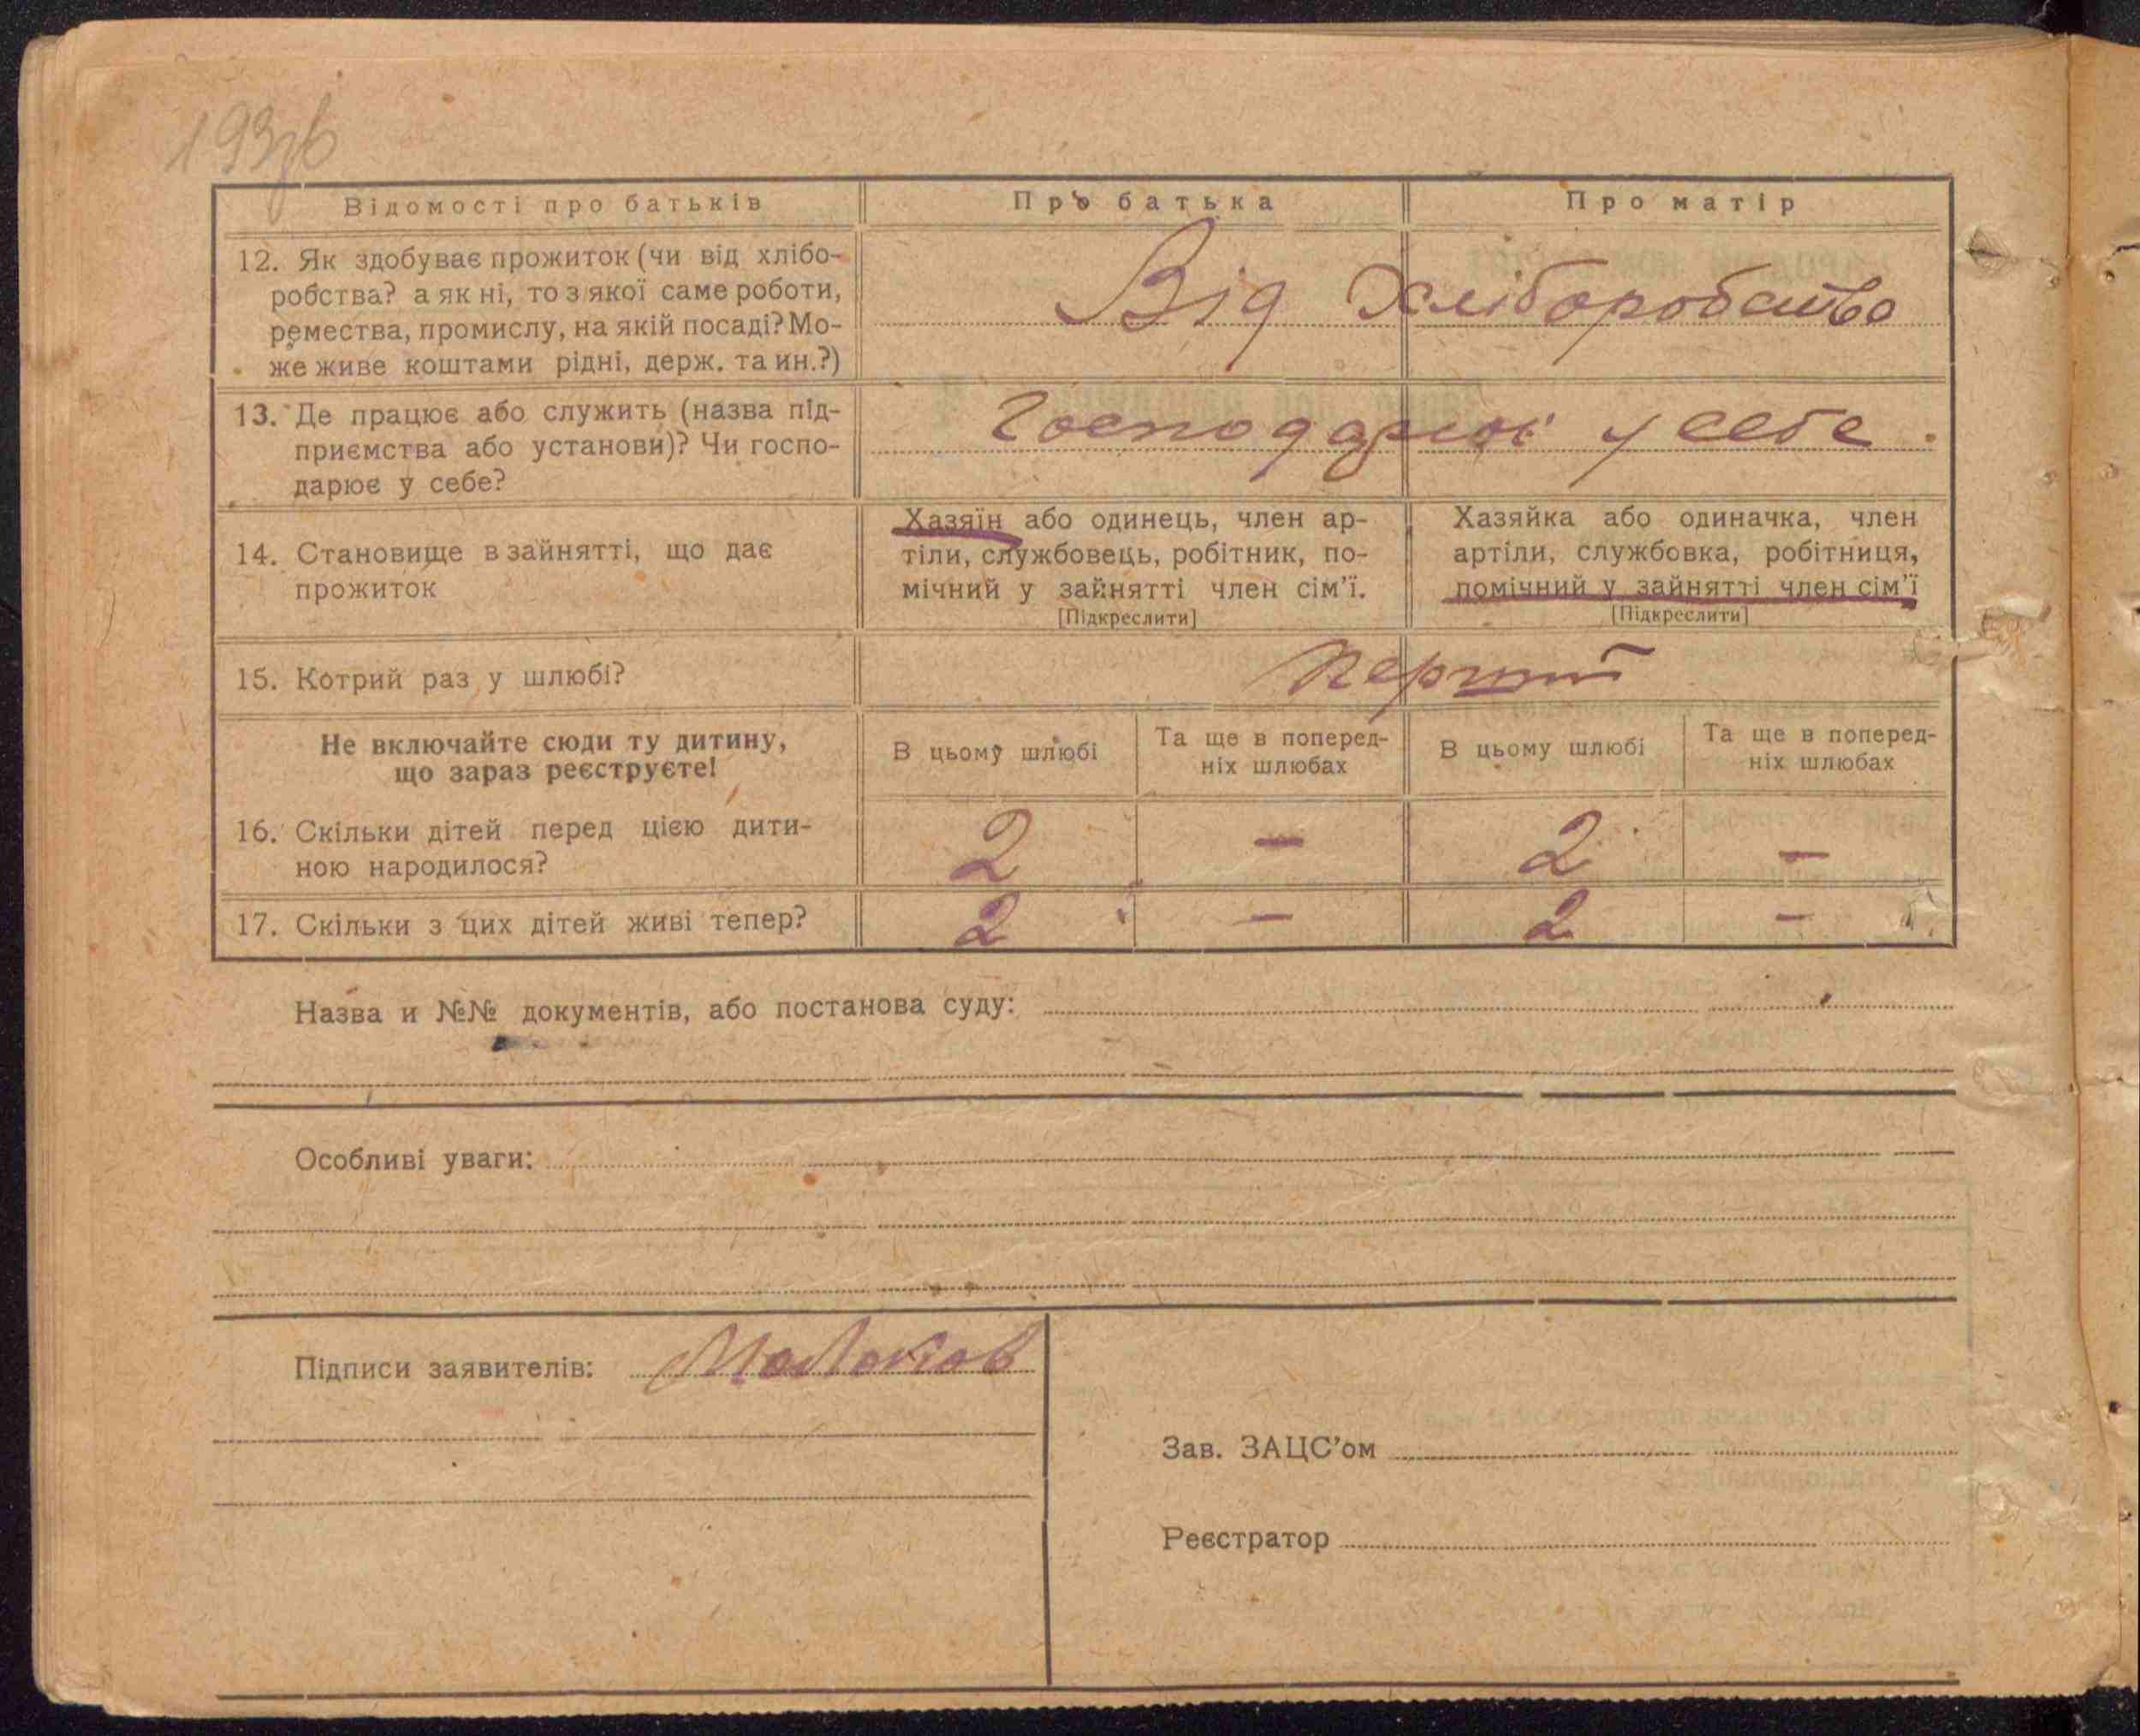 193зв
Відомості про батьків
Про батька
Про матір
12. Як здобуває прожиток (чи від хлібо-
робства? а як ні, то з якої саме роботи,
ремества, промислу, на якій посаді? Мо-
же живе коштами рідні, держ. та ин.?)
Від Хліборобства
13. Де працює або служить (назва під-
приємства або установи)? Чи госпо-
дарює у себе?
Господарює у себе.
14. Становище в зайнятті, що дає
прожиток
Хазяїн або одинець, член ар-
тіли, службовець, робітник, по-
мічний у зайнятті член сім’ї.
[Підкреслити]
Хазяйка або одиначка, член
артіли, службовка, робітниця,
помічний у зайнятті член сім’ї
[Підкреслити]
15. Котрий раз у шлюбі?
Перший
Не включайте сюди ту дитину,
що зараз реєструєте!
В цьому шлюбі
Та ще в поперед-
ніх шлюбах
В цьому шлюбі
Та ще в поперед-
ніх шлюбах
16. Скільки дітей перед цією дити-
ною народилося?
2 — 2 —
17. Скільки з цих дітей живі тепер?
2 — 2 —
Назва и №№ документів, або постанова суду:
Особливі уваги:
Підписи заявителів:
Зав. ЗАЦС’ом
Реєстратор